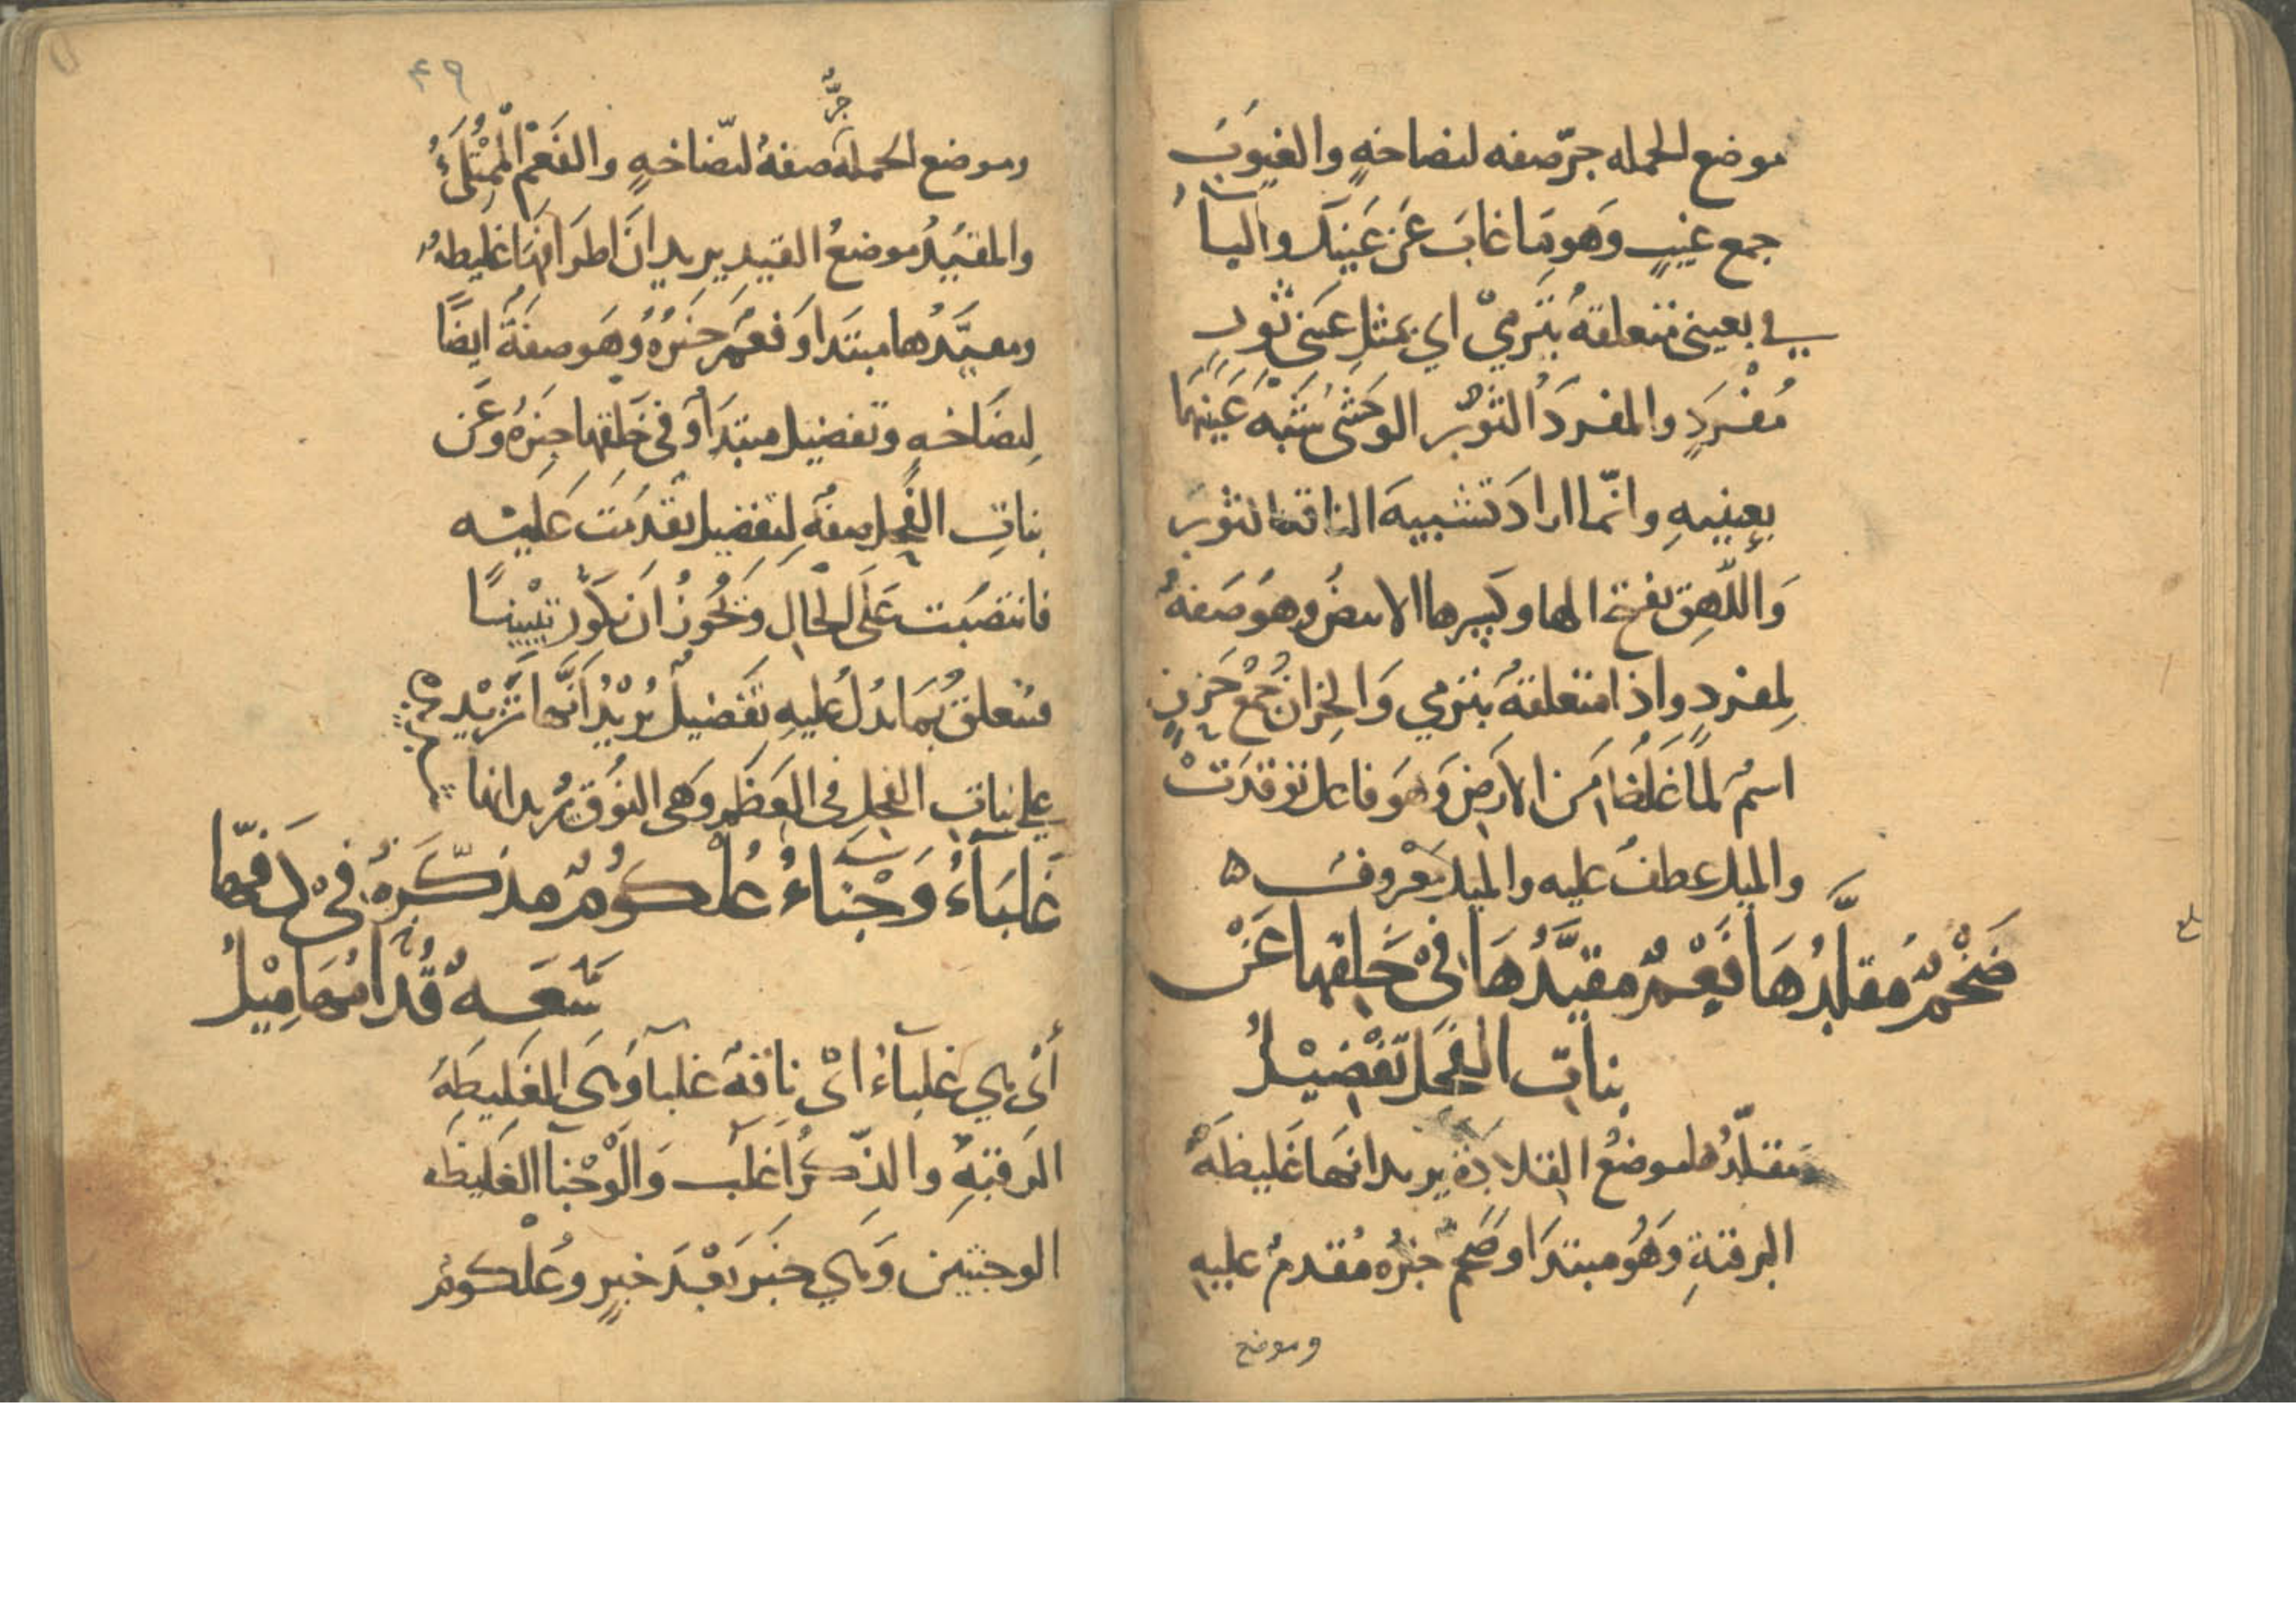 موضع الجملة جرّ صفه لنضاخةٍ والغيوبَ
جمع غيبٍ وَهو مَا غابَ عَن عَينك والبآءُ
في بعيني متعلقةُ بتَرميْ اي بمثلِ عَيَني ثورٍ
مُفْرَدٍ والمفردَ الثورُ الوَحشى شبّهَ عَينيهَا
بعينيهِ وانّما ارادَ تشبيهَ الناقة بالثورِ
وَاللّهِق بفتح الها وكسِرها الابيضُ وهوَ صَفةُ
لِمفردٍ واذا متعلقةُ بترمي وَالحِزان جُمْعُ حَزيزٍ
اسمٌ لماغَلُظَ مَن الارَضِ وَهوَ فاعل توقدَتْ
والميل عطفٌ عليه والميل مَعْروفٌ ه
ضَخْمٌ مُقلَّدُهَا فَعْمٌ مقيَّدُهَا فيْ خَلقها عَنْ
بناتِ الفَحلِ تَفْضِيْلُ
مقلّدُها موضعُ القلادَة يريد انهَا غَليظةَ
الرقبةِ وَهُو مبتدَا وضَخمٌ خبرُه مُقدمٌ عليهِ
وموضع
۴۹
جرٌّ
وموضع الجملة صفةُ لنّضاخةٍ والفَعْمُ المُمْتَلِئُ
والمقيَّدُ موضعُ القَيدِ يريد انَ اطرَافهَا غَليظهُ
ومقيَّدُها مبتدَا وَفعمٌ خَبَرُهُ وُهوَ صفةَ ايضًا
لِنضَاخةٍ وتفضيل مبتدَأ وَفي خَلقها خبرُهُ وَعَن
بناتِ الفحلِ صفةِ لِتفضيل تقدمَت عَليْه
فانتصَبت عَلَى الحَالِ وَيَجُوزُ ان يكَوُن تبيينًا
فتعلقُ بمَا يدُل عُليهِ تفَضيلٌ يُرْيُد اَنَّها تزْيد
على بناتِ الفحلِ في العَظمِ وَهى النُوَق يُريد انها
غَلبَآءُ وَجْنَاءُ عُلْكُوُمٌ مذكّرَةٌ فيْ دَفّهَا
سَعَةٌ قُدَّامُهَا مِيْلُ
أىْ هي غَلبآءُ اىْ ناقةٌ غلبآ وَهىَ الغَليظَةُ
الرقبةِ والذّكرُ اغَلَب وَالَوْجْنآ الغَليظَه
الوجنتين وَهي خبَر بعْدَ خبرٍ وعُلْكومٌ